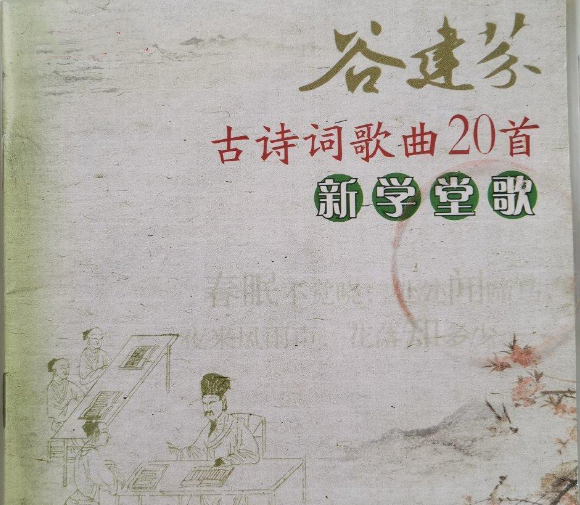 谷建芬
古诗词歌曲20首
新学堂歌
春眠不觉晓，处处闻啼鸟，
夜来风雨声，花落知多少